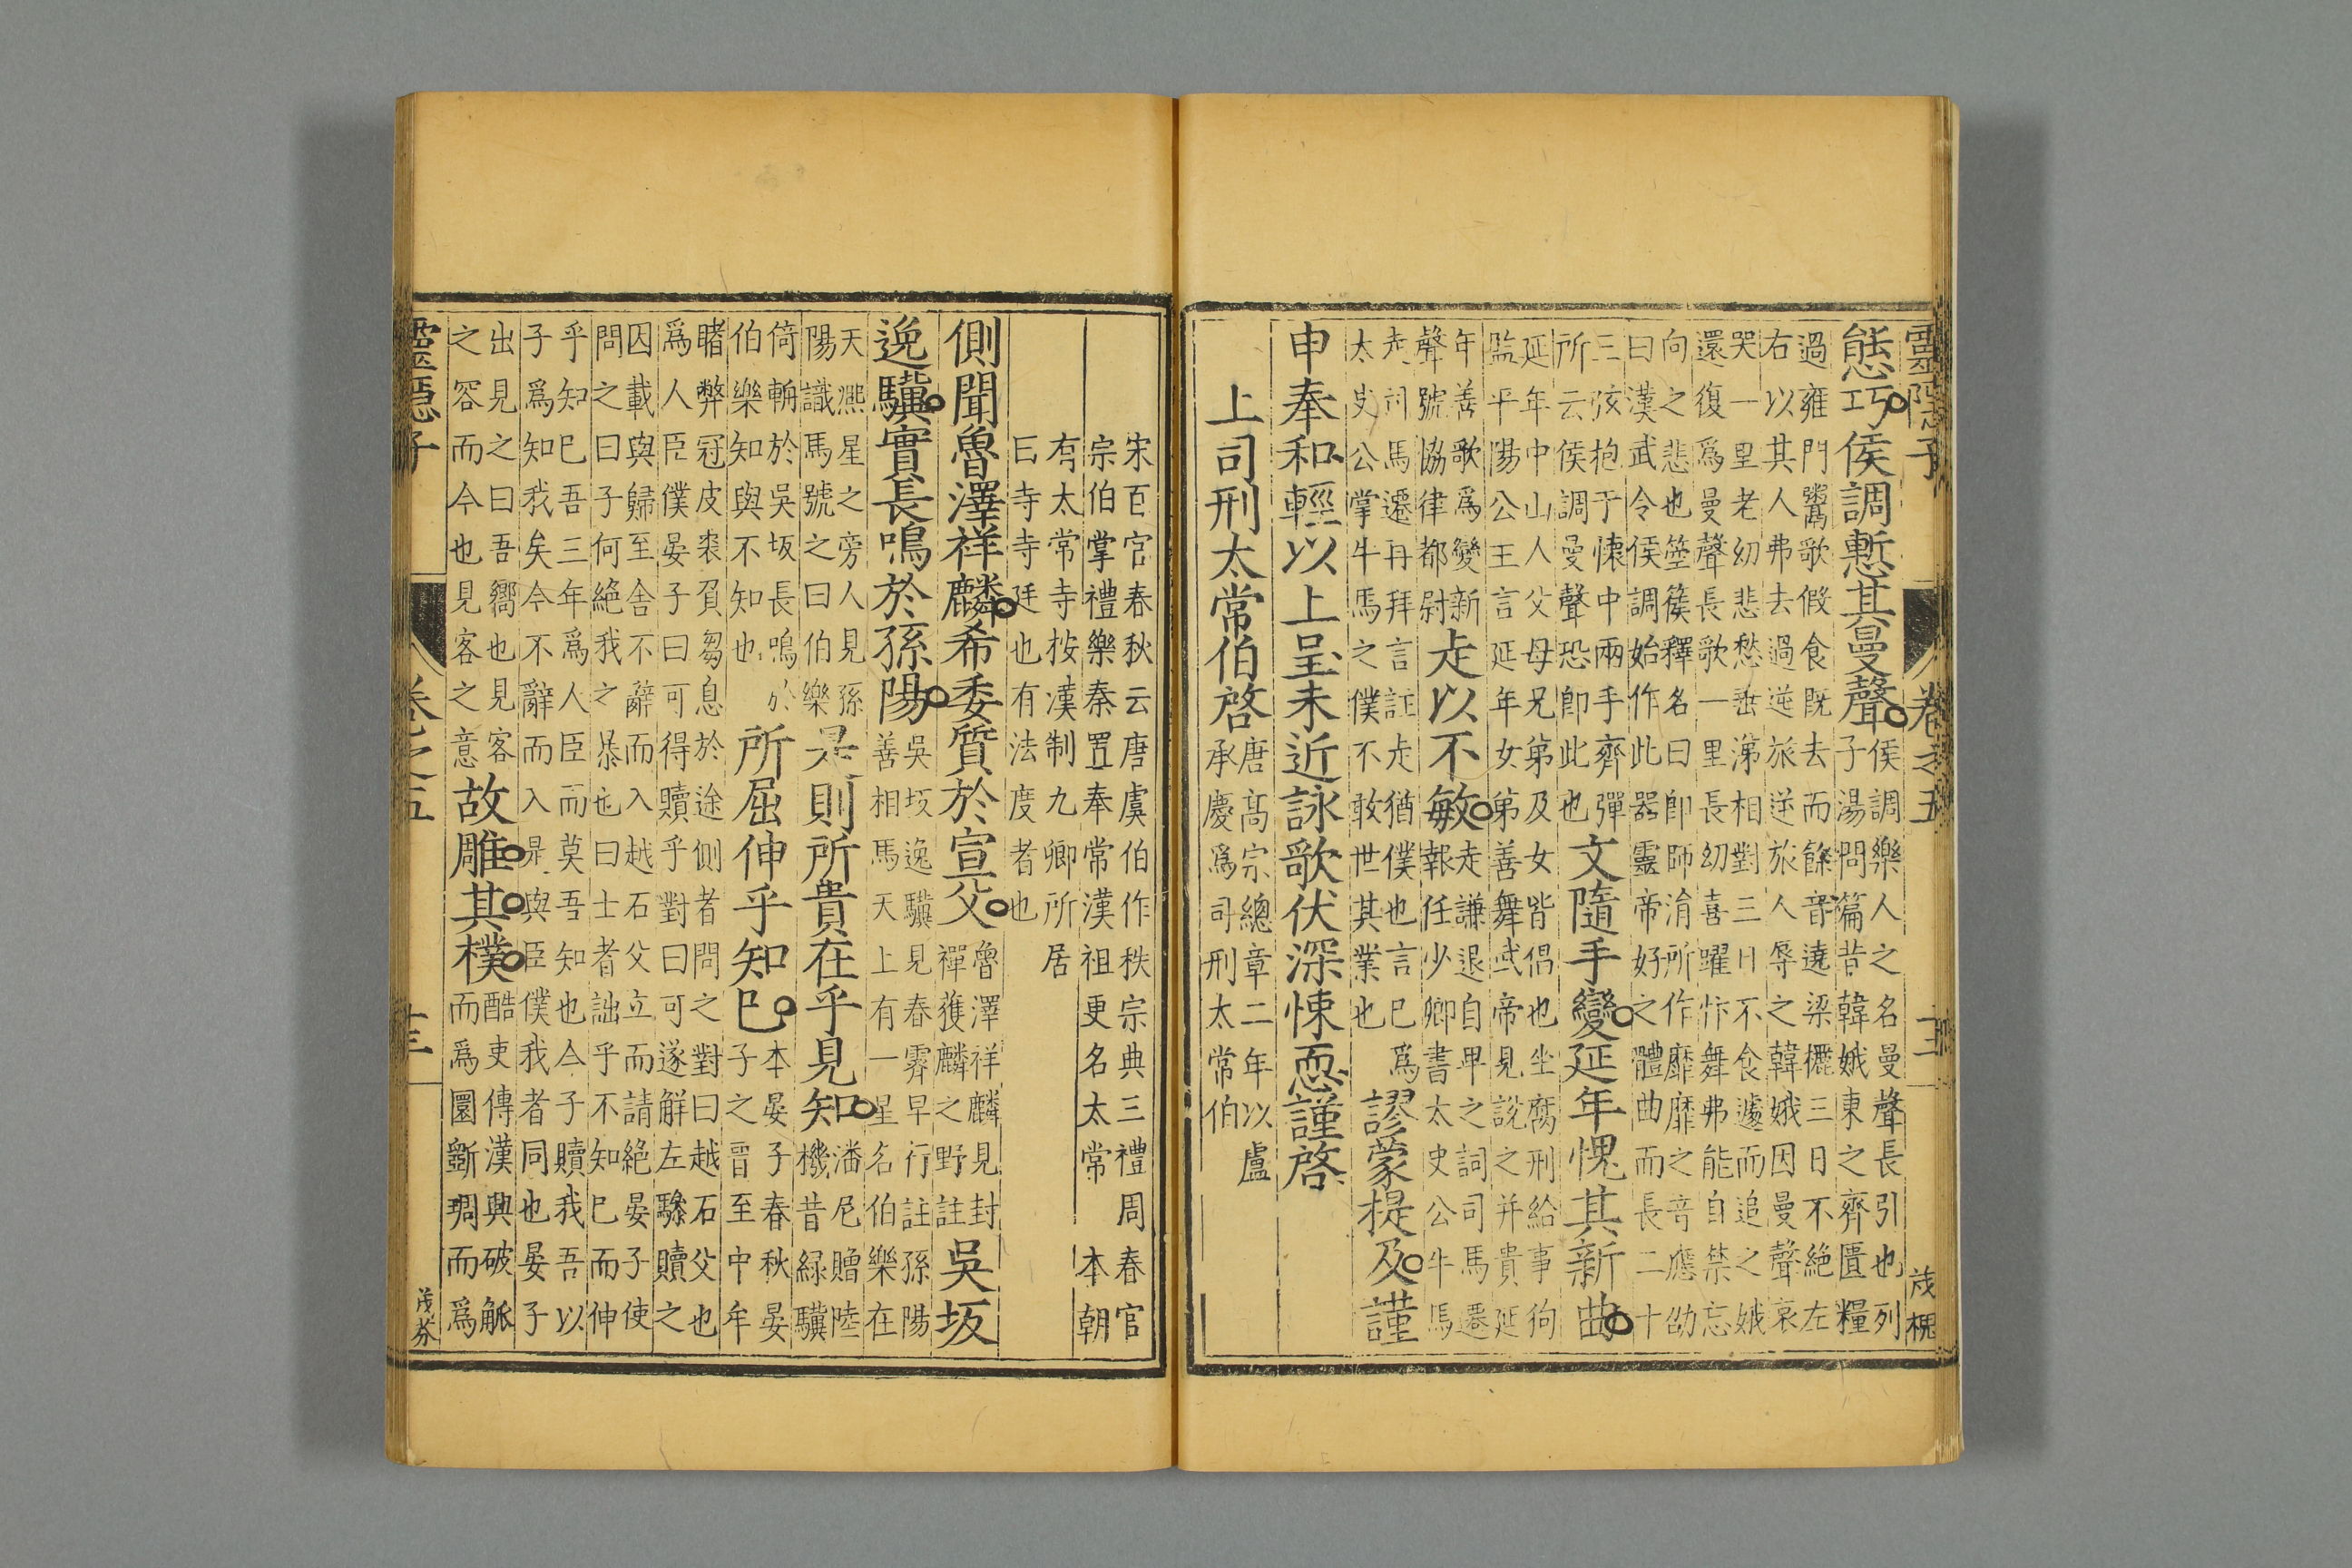 靈隱子 卷之五 十二 茂槐
態巧侯調慙其曼聲
侯調樂人之名曼聲長引也列
子湯問篇昔韓娥東之齊匱糧
過雍門鬻歌假食既去而餘音遶梁欐三日不絕左
右以其人弗去過逆旅逆旅人辱之韓娥因曼聲哀
哭一里老幼悲愁垂涕相對三日不食遽而追之娥
還復爲曼聲長歌一里長幼喜躍忭舞弗能自禁忘
向之悲也箜篌釋名曰即師涓所作靡靡之音應劭
曰漢武令侯調始作此器靈帝好之體曲而長二十
三弦抱于懷中兩手齊彈
所云侯調曼聲恐即此也
文隨手變延年愧其新曲
延年中山人父母兄弟及女皆倡也坐腐刑給事狗
監平陽公王言延年女弟善舞武帝見說之并貴延
年善歌爲變新
聲號協律都尉
走以不敏
走謙退自卑之詞司馬遷
報任少卿書太史公牛馬
走司馬遷再拜言註走猶僕也言巳爲
太史公掌牛馬之僕不敢世其業也
謬蒙提及謹
申奉和輕以上呈未近詠歌伏深悚恧謹啓
上司刑太常伯啓
唐高宗總章二年以盧
承慶爲司刑太常伯
宋百官春秋云唐虞伯作秩宗典三禮周春官
宗伯掌禮樂秦置奉常漢祖更名太常 本朝
有太常寺按漢制九卿所居
曰寺寺廷也有法度者也
側聞魯澤祥麟希委質於宣父
魯澤祥麟見封
禪獲麟之野註
吳坂
逸驥實長鳴於孫陽
吳坂逸驥見春霽早行註孫陽
善相馬天上有一星名伯樂在
天熈星之旁人見孫
陽識馬號之曰伯樂
是則所貴在乎見知
潘尼贈陸
機昔緑驥
倚輈於吳坂長鳴於
伯樂知與不知也
所屈伸乎知巳
本晏子春秋晏
子之晉至中牟
睹弊冠皮裘負芻息於途側者問之對曰越石父也
爲人臣僕晏子曰可得贖乎對曰可遂解左驂贖之
因載與歸至舍不辭而入越石父立而請絕晏子使
問之曰子何絕我之暴也曰士者詘乎不知巳而伸
乎知巳吾三年爲人臣而莫吾知也今子贖我吾以
子爲知我矣今不辭而入是與臣僕我者同也晏子
出見之曰吾嚮也見客
之容而今也見客之意
故雕其樸
酷吏傳漢興破觚
而爲圜斵琱而爲
靈隱子 卷之五 十三 茂芬